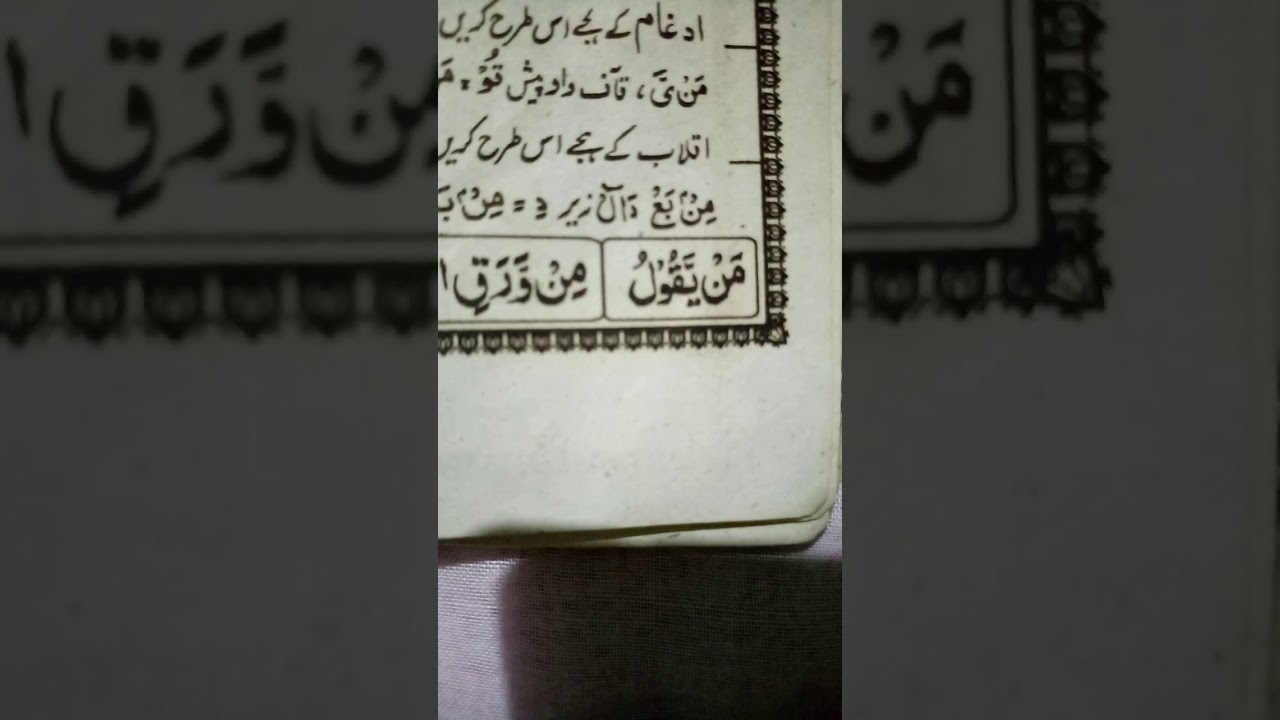 ادغام کے ہجے اس طرح کریں
مَنْ یَ ، قاف واو پیش قُوْ =
اقلاب کے ہجے اس طرح کریں
مِنْۢ بَعْ دال زیر دِ = مِنْۢ بَ
مَنْ یَّقُوْلُ مِنْ وَّرَقِ ا